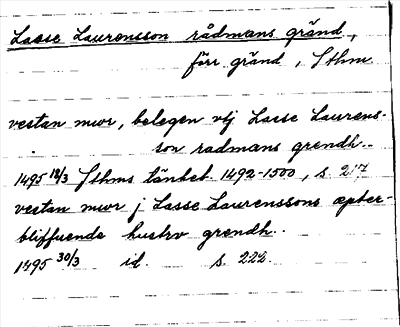 Lasse Laurensson rådmans gränd,
förr gränd, Sthm
vestan mwr, belegen vtj Lasse Laurens-
son radmans grendh..
1495 18/3 Sthms tänkeb. 1492-1500, s. 217
vestan mwr j Lasse Laurenssons æpter-
bliffuende hustrv grendh..
1495 30/3 id. s. 222.